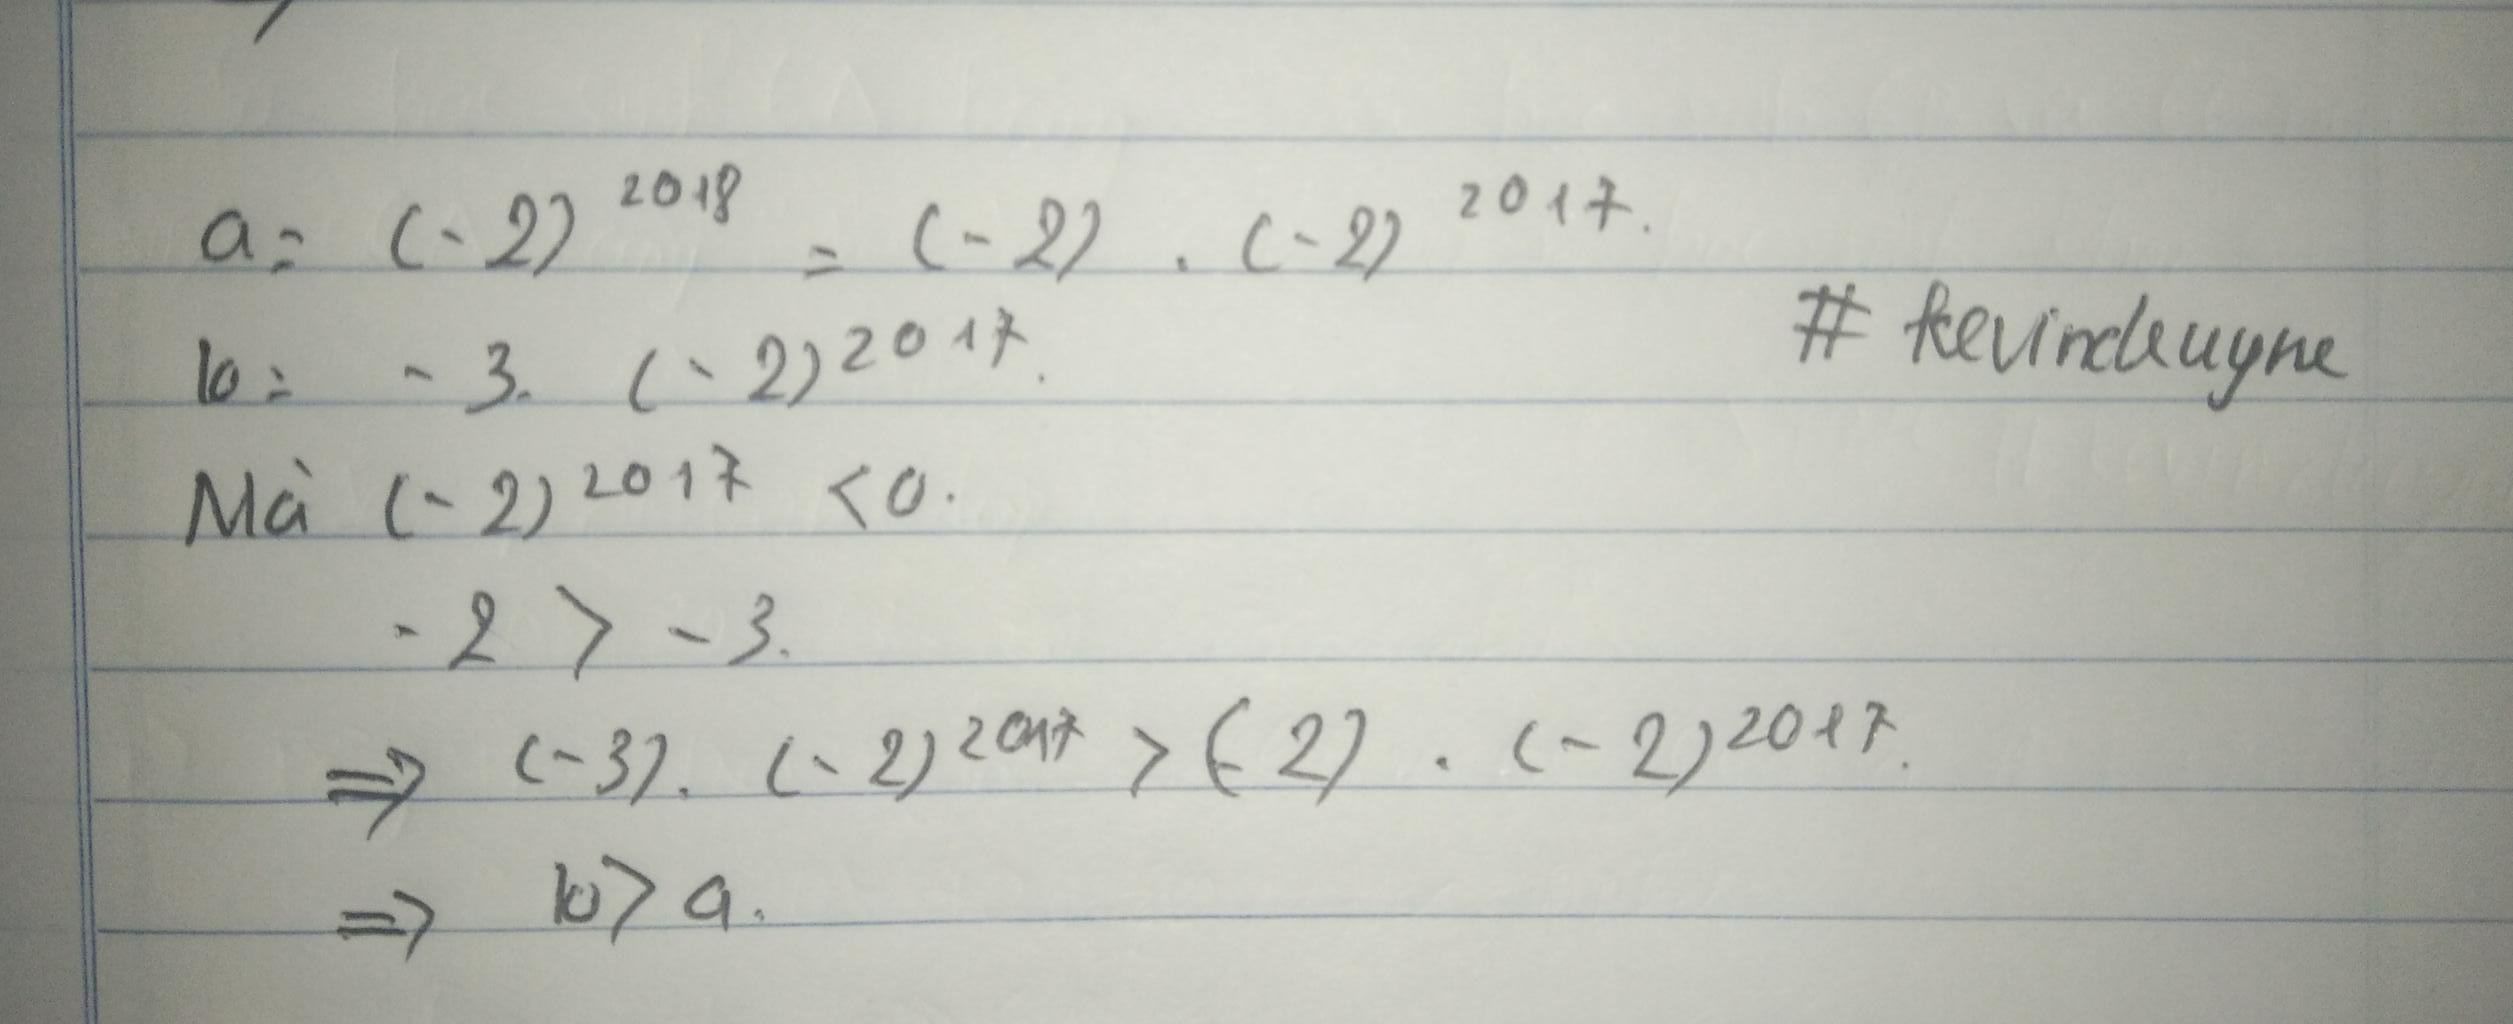 a = (-2)^2018 = (-2) . (-2)^2017.
b = -3. (-2)^2017.
# kevindeuyne
Mà (-2)^2017 < 0.
-2 > -3.
=> (-3). (-2)^2017 > (-2) . (-2)^2017.
=> b > a.